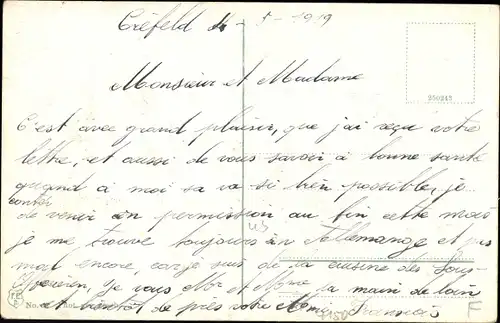 Créfeld 4-5-1919
Monsieur et Madame
250245
C'est avec grand plaisir, que j'ai reçu votre
lettre, et aussi de vous savoir à bonne santé
quand à moi sa va si bien possible, je
conter
de venir en permission au fin cette mois
je me trouve toujours en Allemange et pas
mal encore, car je suis de la cuisine des Sous-
Je vous Mr et Mme la main de loin
No.
et bientôt de près votre François
E